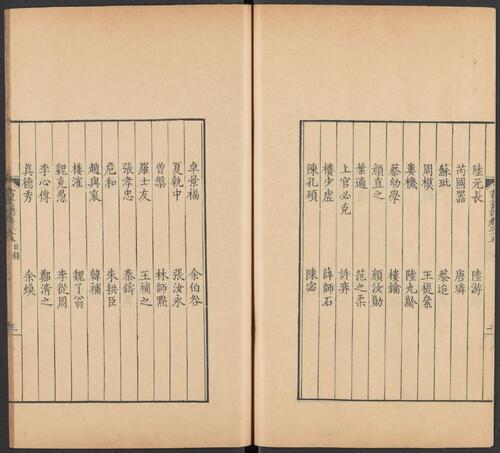 陸元長 陸游
芮國器 唐璘
蘇玭 蔡迨
周模 王禔彙
婁機 陸九齡
蔡幼學 樓鑰
顏直之 顏汝勛
葉適 范之柔
上官必克 許弈
樓少虛 薛師石
陳孔碩 陳宓
卓景福 余伯咎
夏執中 張汝永
曾槃 林師點
羅士友 王補之
張孝忠 秦鑄
危和 朱拱臣
趙與褱 韓補
樓潅 魏了翁
魏克愚 李從周
李心傳 鄭清之
真德秀 余煥
目錄